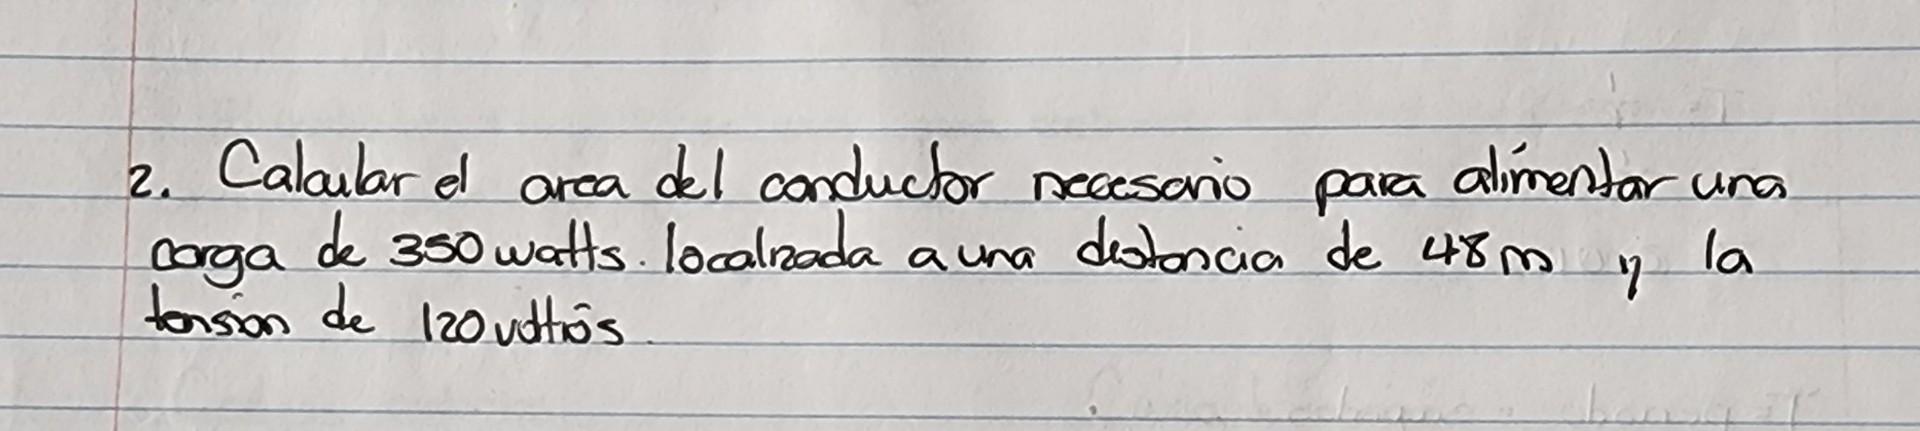 2. Calcular el area del conductor necesario para alimentar una
carga de 350 watts. localizada a una distancia de 48 m y la
tension de 120 voltios.